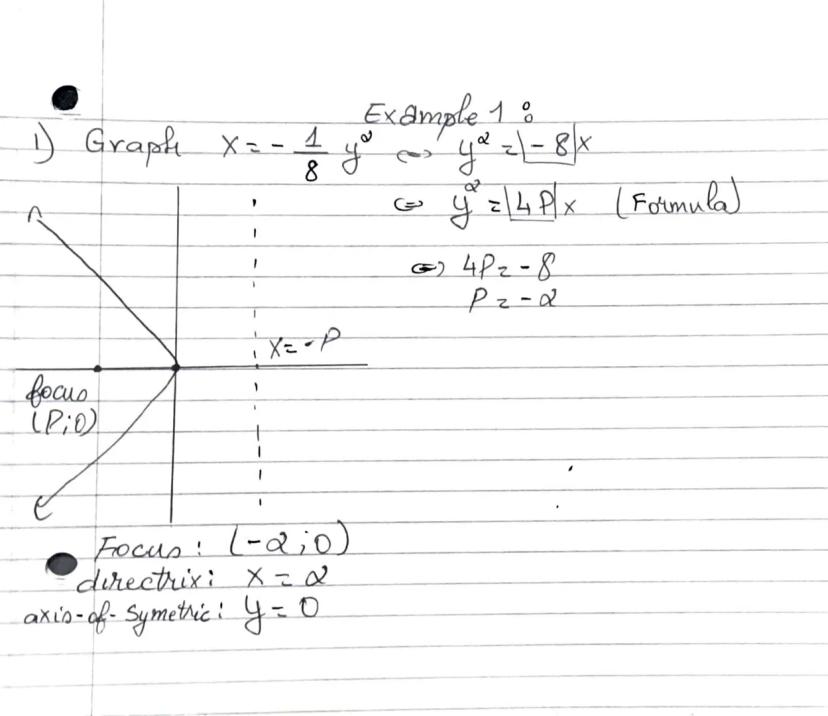 Example 1:
1) Graph x = - 1/8 y² ⇔ y² = |-8|x
⇔ y² = |4P|x (Formula)
⇔ 4P = -8
P = -2
x = -P
focus
(P;0)
Focus: (-2;0)
directrix: x = 2
axis-of-Symetric: y = 0